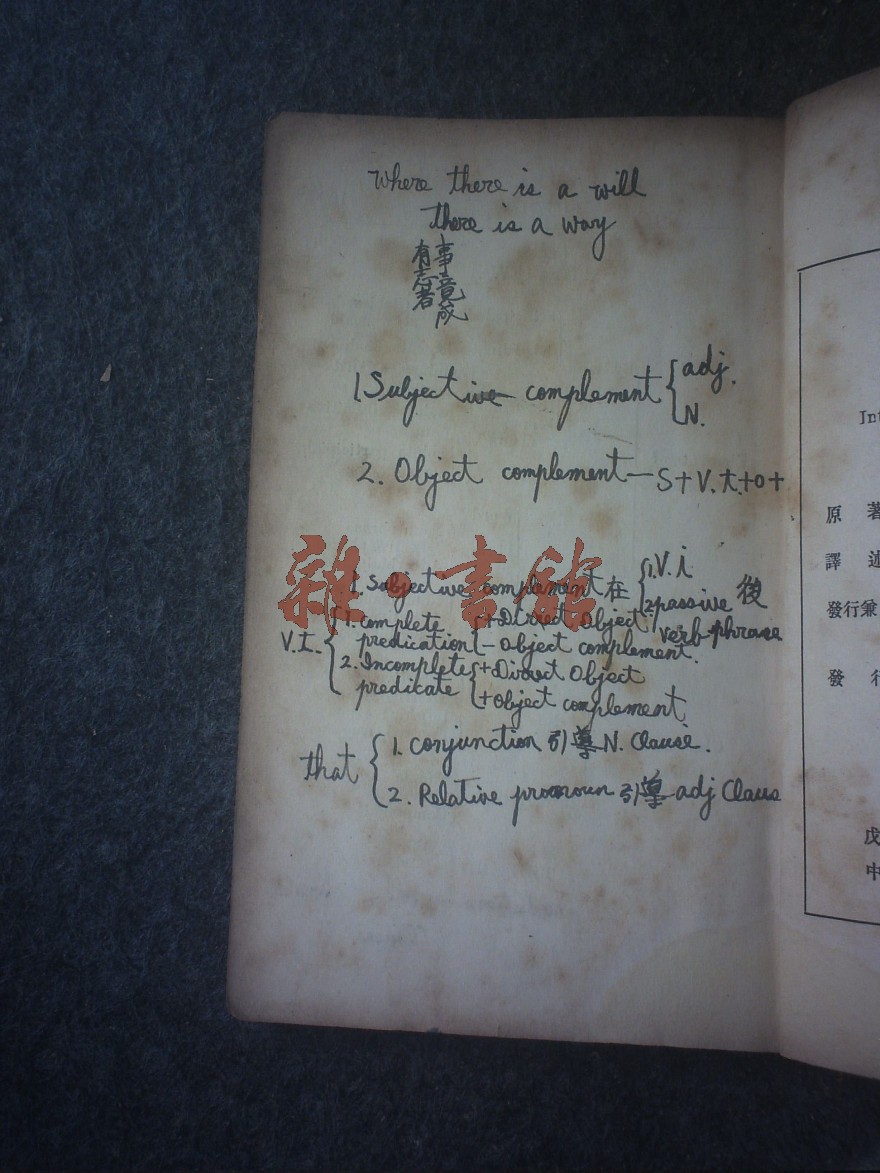 Where there is a will
there is a way
有志者
事竟成
1. Subjective complement { adj.
N.
2. Object complement — S+V.t.+O+
雜·書館
1. Subjective complement 在 { 1. V.i
2. passive verb-phrase 後
V.t. { 1. complete predication { + Direct Object
- Object complement.
2. Incomplete predicate { + Direct Object
+ Object complement
that { 1. conjunction 引導 N. Clause.
2. Relative pronoun 引導 adj Claus
Int
原 著
譯 述
發行兼
發 行
戊
中